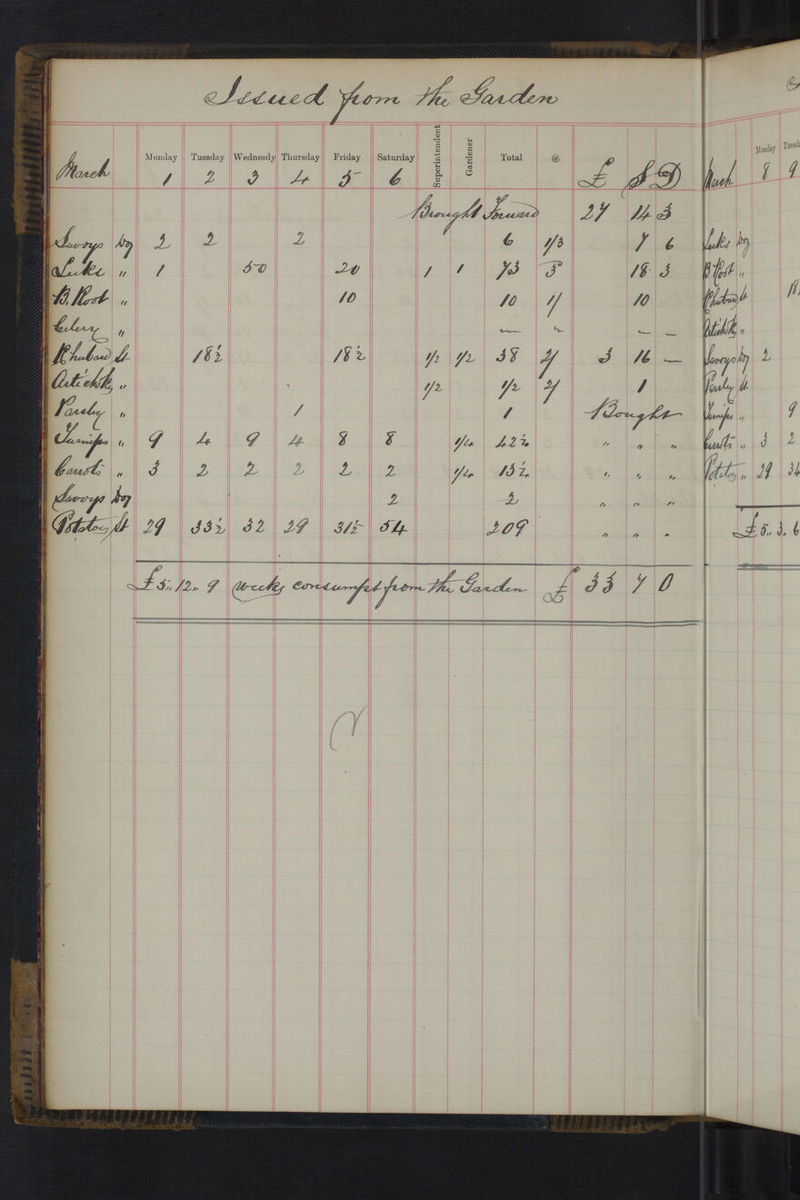 Issued from the Garden
March Monday 1 Tuesday 2 Wednesdy 3 Thursday 4 Friday 5 Saturday 6 Superintendent Gardener Total @ £ S D
Brought Forward 27 14 3
Savoys Doz 2 2 2 6 1/3 7 6
Leeks " 1 50 20 1 1 73 3 18 3
B. Root " 10 10 1/ 10
Celery " — " — —
Rhubard St 18½ 18½ ½ ½ 38 2/ 3 16 —
Artichk " ½ ½ 2/ 1
Parsley " 1 1 Bought
Turnips " 9 4 9 4 8 8 ¼ 42¼ " " "
Carrots " 3 2 2 2 2 2 ¼ 13¼ " " "
Savoys Doz 2 2 " " "
Potatoes St 29 33½ 32 29 31½ 54 209 " " "
£5.. 12.. 9 weeks consumpt from the Garden £ 33 7 0
March Monday 8 9
Leeks Doz
B Root "
Rhubarb St 18
Artichk "
Savoys Doz 2
Parsley St
Turnips " 9
Carrots " 3 2
Potatoes " 29 34
£5.. 3. 6